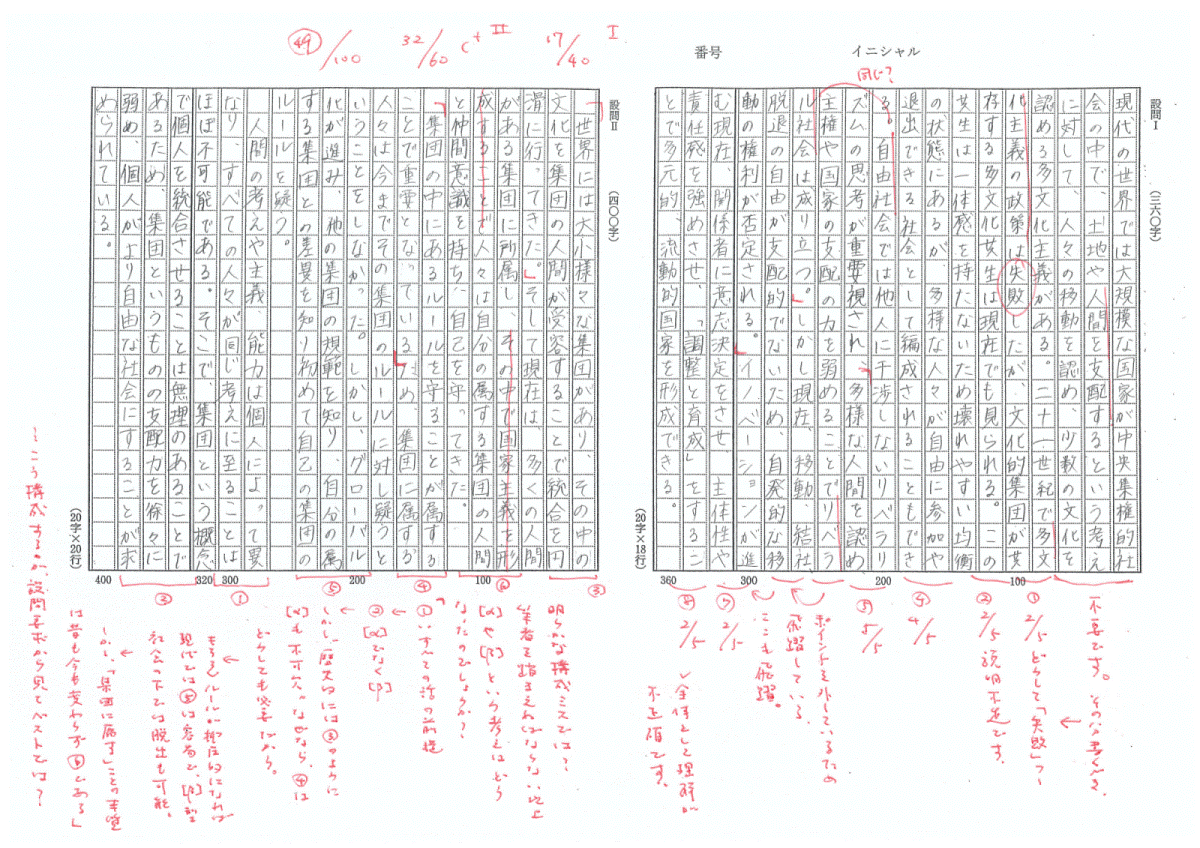 番号
イニシャル
設問Ⅰ
(三六〇字)
現代の世界では大規模な国家が中央集権的社
会の中で、土地や人間を支配するという考え
に対して、人々の移動を認め、少数の文化を
認める多文化主義がある。二十一世紀で多文
化主義の政策は失敗したが、文化的集団が共
存する多文化共生は現在でも見られる。この
共生は一体感を持たないため壊れやすい均衡
の状態にあるが、多様な人々が自由に参加や
退出できる社会として編成されることもでき
る。自由社会では他人に干渉しないリベラリ
ズムの思考が重要視され、多様な人間を認め
主権や国家の支配の力を弱めることでリベラ
ル社会は成り立つ。しかし現在、移動、結社
脱退の自由が支配的でないため、自発的な移
動の権利が否定される。イノベーションが進
む現在、関係者に意志決定をさせ、主体性や
責任感を強めさせ、「調整と育成」をするこ
とで多元的、流動的国家を形成できる。
(20字×18行)
100
200
300
360
同じ?
不要です。その分書くべき。
① 2/5 どうして「失敗」?
② 2/5 説明不足です。
④ 4/5
⑤ 5/5
ポイントを外しているため
飛躍している。
ここも飛躍。
⑦ 2/5
⑧ 2/5
✓全体として理解が
不正確です。
Ⅰ
17/40
Ⅱ
C+
32/60
49/100
設問Ⅱ
(四〇〇字)
世界には大小様々な集団があり、その中の
文化を集団の人間が受容することで統合を円
滑に行ってきた。そして現在は、多くの人間
がある集団に所属し、その中で国家主義を形
成することで人々は自分の属する集団の人間
と仲間意識を持ち、自己を守ってきた
集団の中にあるルールを守ることが属する
ことで重要となっているため、集団に属する
人々は今までその集団のルールに対し疑うと
いうことをしなかった。しかし、グローバル
化が進み、他の集団の規範を知り、自分の属
する集団との差異を知り初めて自己の集団の
ルールを疑う。
人間の考えや主義、能力は個人によって異
なり、すべての人々が同じ考えに至ることは
ほぼ不可能である。そこで、集団という概念
で個人を統合させることは無理のあることで
あるため、集団というものの支配力を徐々に
弱め、個人がより自由な社会にすることが求
められている。
(20字×20行)
100
200
300
320
400
③
明らかな構成ミスでは?
筆者を踏まえねばならない以上
[α]や[β]という考えはどう
なったのでしょうか?
⑥
④
①いすべての活の前提
②[α]でなく[β]
⑤
しかし、歴史的には③のように
[α]も不可欠。なぜなら、④は
どうしても必要だから。
①
もちろんルールが抑圧的になれば
現代では⑤は容易で、[β]型
社会の下では脱出も可能。
②
しかし、「集団に属す」ことの重要
は昔も今も変わらず⑥である」
—こう構成するのが設問要求から見てベストでは?